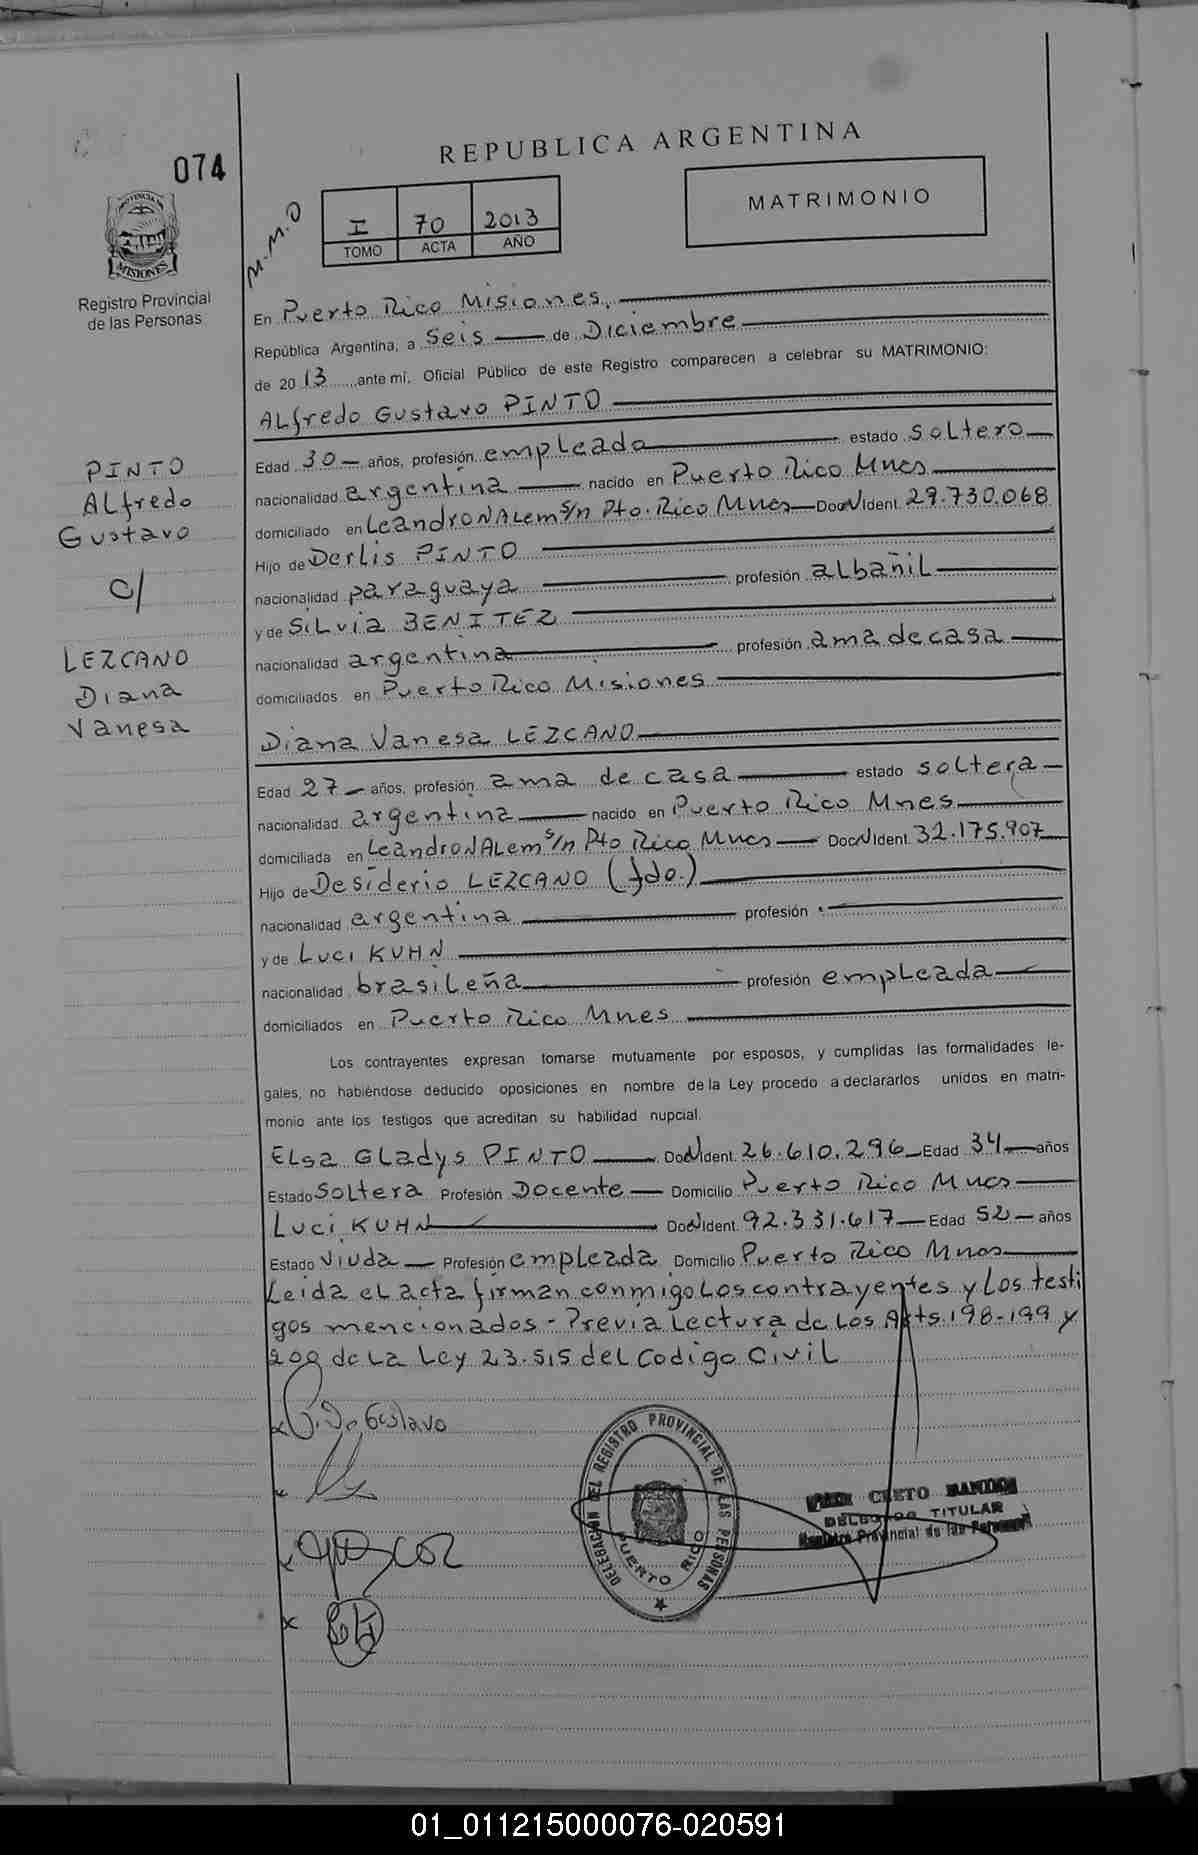 REPUBLICA ARGENTINA
074
PROVINCIA DE
MISIONES
Registro Provincial
de las Personas
M.M.O
I 70 2013
TOMO ACTA AÑO
MATRIMONIO
En Puerto Rico Misiones,
República Argentina, a Seis de Diciembre
de 2013 ante mí, Oficial Público de este Registro comparecen a celebrar su MATRIMONIO:
ALfredo Gustavo PINTO
Edad 30 años, profesión empleado estado Soltero
nacionalidad argentina nacido en Puerto Rico Mnes
domiciliado en Leandro N ALem s/n Pto. Rico Mnes Doc N Ident. 29.730.068
Hijo de Derlis PINTO
nacionalidad paraguaya profesión albañil
y de SiLvia BENITEZ
nacionalidad argentina profesión ama de casa
domiciliados en Puerto Rico Misiones
Diana Vanesa LEZCANO
Edad 27 años, profesión ama de casa estado soltera
nacionalidad argentina nacido en Puerto Rico Mnes
domiciliada en Leandro N ALem s/n Pto Rico Mnes Doc N Ident. 32.175.907
Hijo de Desiderio LEZCANO (fdo.)
nacionalidad argentina profesión
y de Luci KUHN
nacionalidad brasileña profesión empleada
domiciliados en Puerto Rico Mnes
PINTO
ALfredo
Gustavo
c/
LEZCANO
Diana
Vanesa
Los contrayentes expresan tomarse mutuamente por esposos, y cumplidas las formalidades le-
gales, no habiéndose deducido oposiciones en nombre de la Ley procedo a declararlos unidos en matri-
monio ante los testigos que acreditan su habilidad nupcial.
ELsa GLadys PINTO Doc N Ident. 26.610.296 Edad 34 años
Estado Soltera Profesión Docente Domicilio Puerto Rico Mnes
Luci KUHN Doc N Ident. 92.331.617 Edad 52 años
Estado Viuda Profesión empleada Domicilio Puerto Rico Mnes
Leida el acta firman conmigo Los contrayentes y Los testi
gos mencionados - Previa Lectura de Los Arts. 198-199 y
200 de La Ley 23.515 del Codigo Civil
Gustavo
DELEGACION DEL REGISTRO PROVINCIAL DE LAS PERSONAS
PUERTO RICO
TITULAR
Registro Provincial de las Personas
01_011215000076-020591